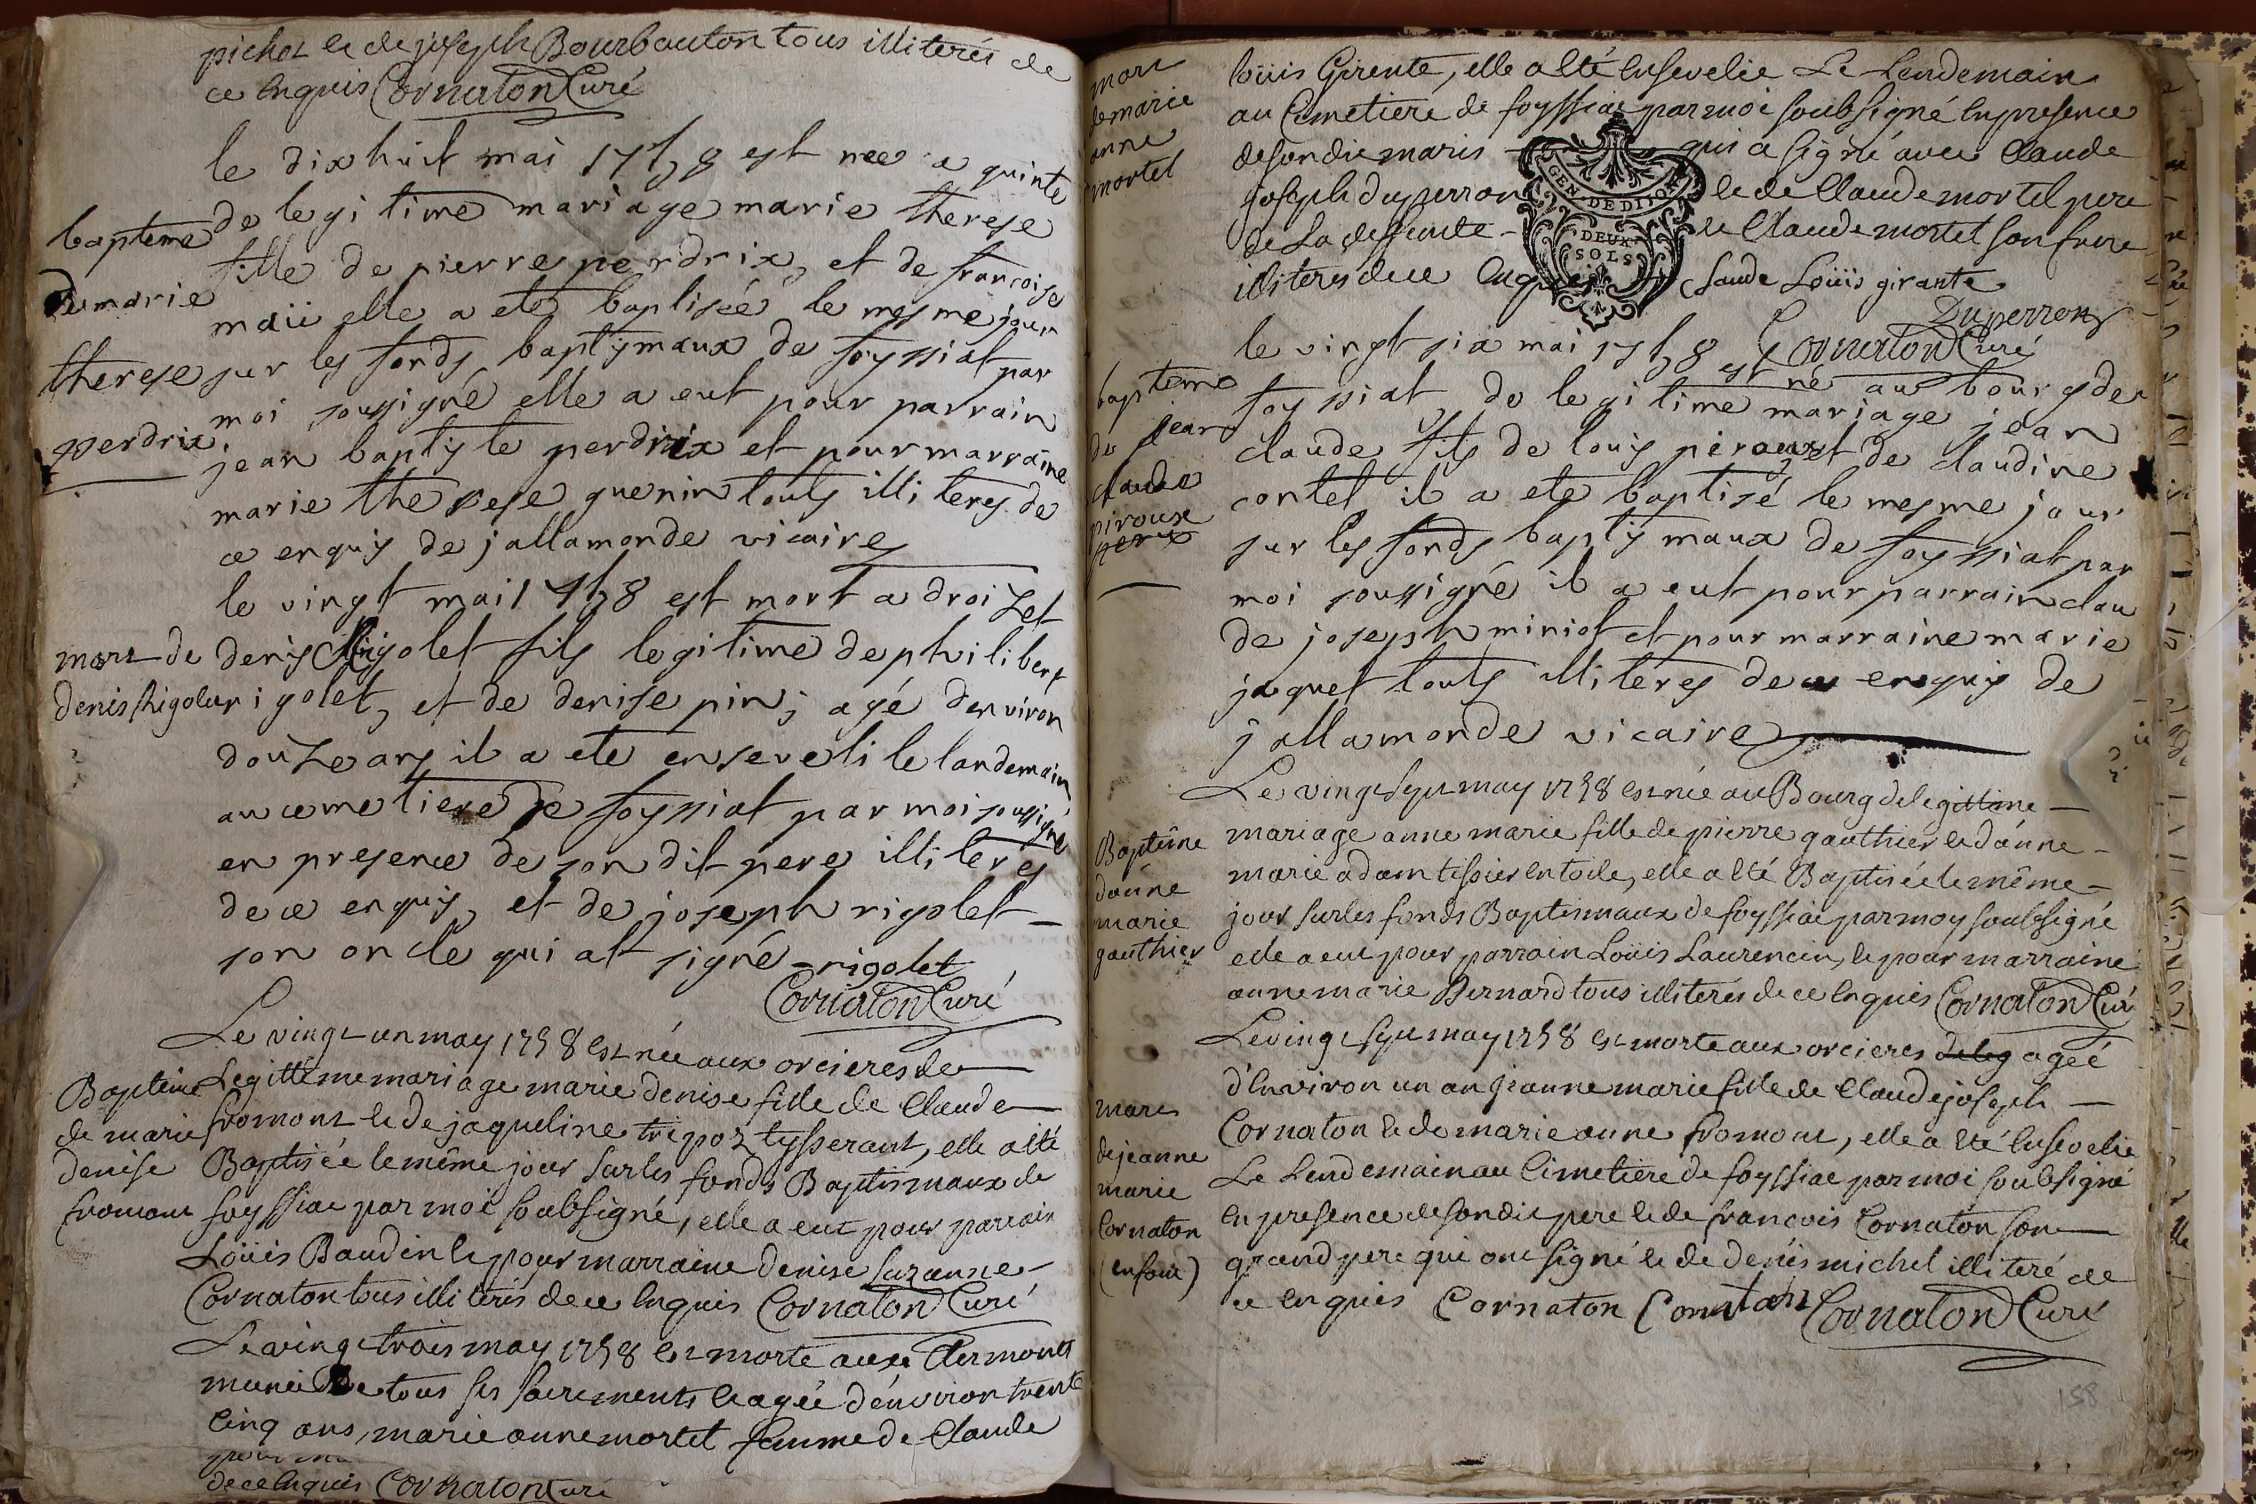 pichot et de joseph Bourbouton tous illiterés de
ce Enquis Cornaton Curé
le dix huit mai 1758 est nee a quinte
de legi time mariage marie therese
fille de pierre perdrix, et de francoise
maii elle a eté baptisée le mesme jour
sur les fonds baptismaux de foyssiat par
moi soussigné elle a eut pour parrain
jean baptiste perdrix et pour marraine
marie therese guenin touts illiteres de
ce enquis de jallamonde vicaire
baptême
de marie
therese
perdrix
le vingt mai 1758 est mort a droizet
denis Rigolet fils legitime de philibert
rigolet, et de denise pin, agé d'environ
douze ans il a ete enseveli le landemain
au cemetiere de foyssiat par moi soussigné
en presence de son dit pere illiteres
de ce enquis, et de joseph rigolet
son oncle qui at signé - rigolet
Cornaton Curé
mort de
denis Rigolet
Le vingt un may 1758 est née aux orcieres de
Legittime mariage marie denise fille de Claude
fromont et de jaqueline tripoz tysserant, elle a été
Baptisée le même jour sur les fonds Baptismaux de
foyssiat par moi soubsigné, elle a eut pour parrain
Loüis Baudin et pour marraine denise suzanne
Cornaton tous illiterés de ce Enquis Cornaton Curé
Baptême
de marie
denise
fromont
Le vingt trois may 1758 est morte aux Clermonts
munie de tous ses sacrements et agée d'environ trente
cinq ans, marie anne mortel femme de Claude
de ce Enquis Cornaton Curé
mort
de marie
anne
mortel
loüis Girente, elle a été Ensevelie Le Lendemain
au Cimetiere de foyssiat par moi soubsigné En presence
de son dit maris qui a signé avec Claude
joseph duperron et de Claude mortel pere
de La deffunte - et Claude mortel son frere
illiterés de ce Enquis Claude Loüis girante
Duperron
Cornaton Curé
GEN. DE DIJON
DEUX
SOLS
le vingt six mai 1758 est né au bourg de
foyssiat de legitime mariage jean
claude fils de louis peroux et de claudine
contet il a eté baptisé le mesme jour
sur les fonds baptismaux de foyssiat par
moi soussigné il a eut pour parrain clau
de joseph miniot et pour marraine marie
jaquet touts illiteres de ce enquis de
jallamonde vicaire
baptême
de jean
claude
piroux
Le vingt sept may 1758 est née au Bourg de legittime
mariage anne marie fille de pierre gauthier et d'anne
marie adam tissier en toile, elle a été Baptisée le même
jour sur les fonds Baptismaux de foyssiat par moy soubsigné
elle a eut pour parrain Loüis Laurencin, et pour marraine
anne marie Bernard tous illiterés de ce Enquis Cornaton Curé
Baptême
d'anne
marie
gauthier
Le vingt sept may 1758 est morte aux orcieres de leg agée
d'Environ un an jeanne marie fille de Claude joseph
Cornaton et de marie anne fromont, elle a été Ensevelie
Le Lendemain au Cimetiere de foyssiat par moi soubsigné
En presence de son dit pere et de francois Cornaton son
grand pere qui ont signé et de denis michel illiteré de
ce Enquis Cornaton Cornaton Cornaton Curé
mort
de jeanne
marie
Cornaton
(enfant)
158